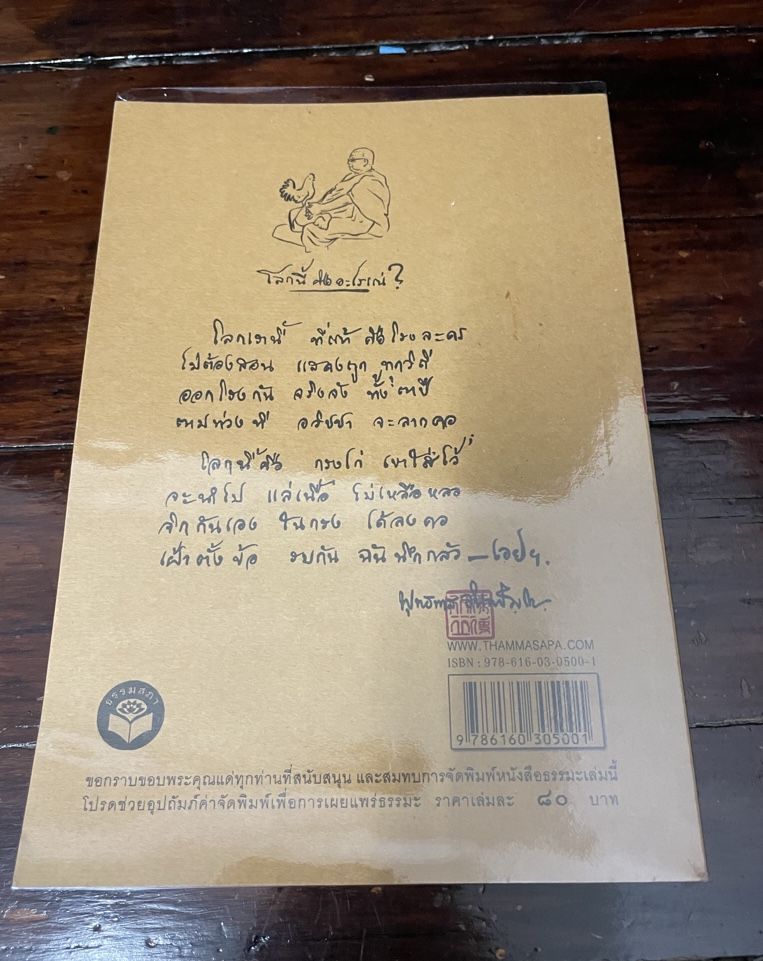 โลกนี้ คือ อะไรแน่?
โลกเรานี้ ที่แท้ คือโรงละคร
ไม่ต้องสอน แสดงถูก ทุกวิถี
ออกโรงกัน จริงจัง ทั้งตาปี
ตามท่วงที อวิชชา จะลากคอ
โลกนี้คือ กรงไก่ เขาใส่ไว้
จะนำไป แล่เนื้อ ไม่เหลือหลอ
จิกกันเอง ในกรง ได้ลงคอ
เฝ้าตั้งข้อ รบกัน ฉันนึกกลัว–เอยฯ.
WWW.THAMMASAPA.COM
ISBN : 978-616-03-0500-1
9 786160 305001
ธรรมสภา
ขอกราบขอบพระคุณแด่ทุกท่านที่สนับสนุน และสมทบการจัดพิมพ์หนังสือธรรมะเล่มนี้
โปรดช่วยอุปถัมภ์ค่าจัดพิมพ์เพื่อการเผยแพร่ธรรมะ ราคาเล่มละ ๘๐ บาท